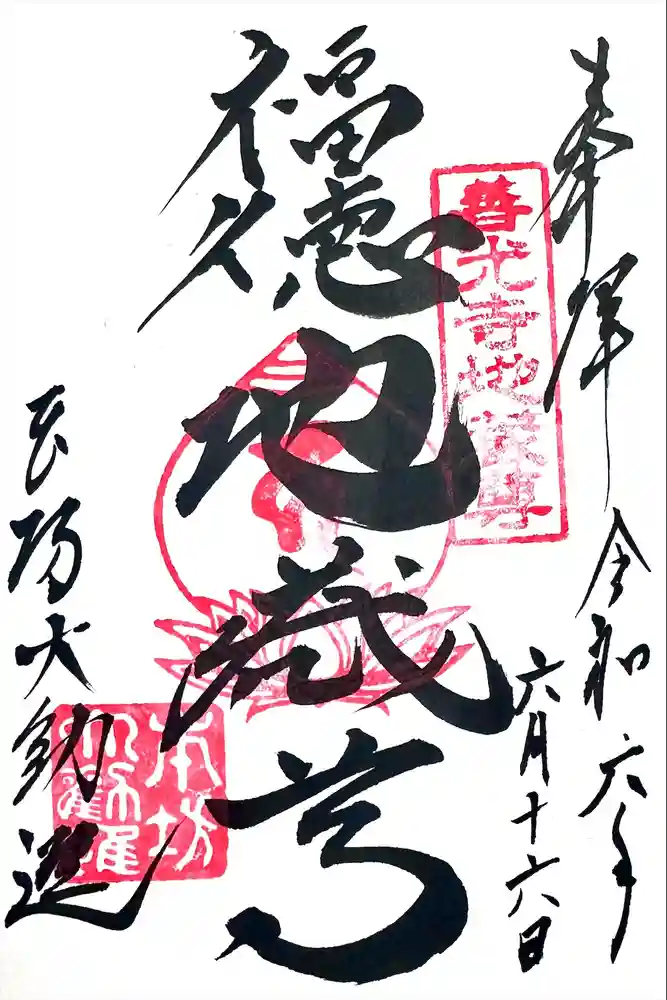 奉拝
令和六年
六月十六日
善光寺地蔵尊
福徳
地蔵尊
本坊大勧進
本坊
大勧進